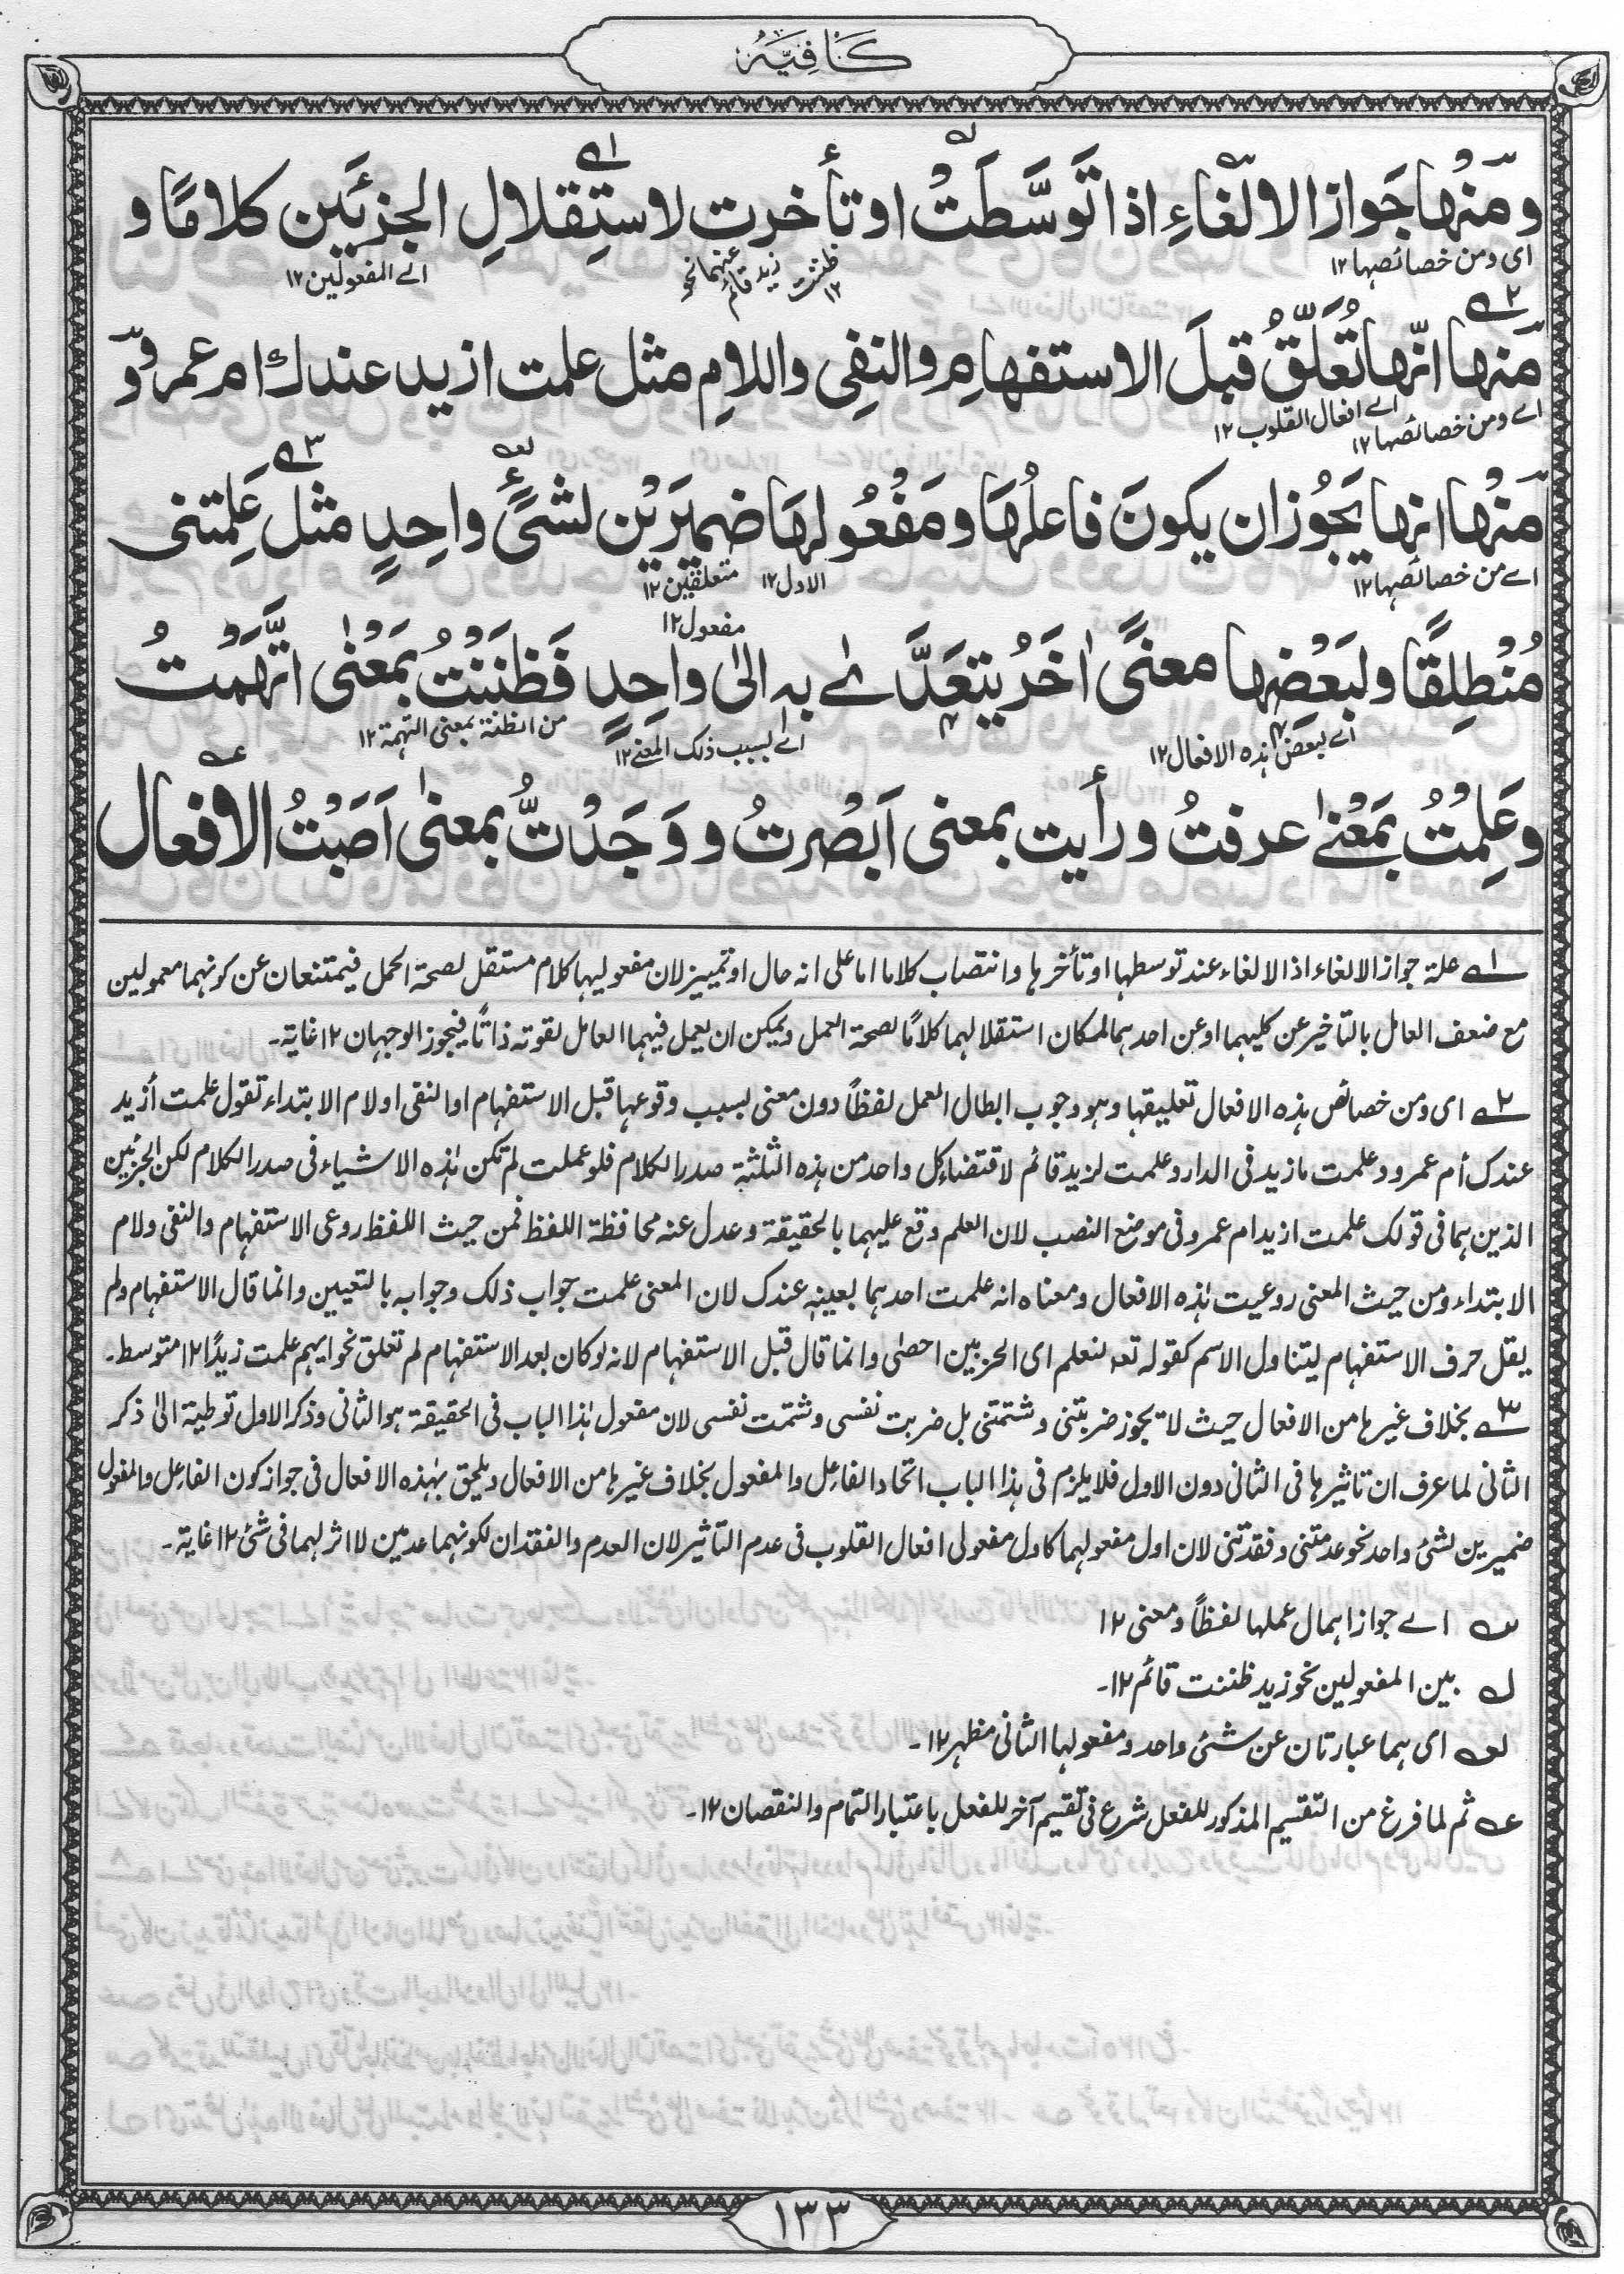 كَافِيَه
ومنْها جَواز الالْغاءِ اذا تَوسَّطَتْ او تأخرت لاستِقلالِ الجزئَين كلامًا و
ای ومن خصائصہا ۱۲
ظننت زید قائم
عنہما نحو
۱۲
اے المفعولین ۱۲
منها انّها تُعَلَّقُ قبلَ الاستفهامِ والنفِی واللامِ مثل علمت ازید عندك ام عمرو و
اے ومن خصائصہا ۱۲
اے افعال القلوب ۱۲
منْها انها یَجُوز ان یکونَ فاعلُهَا ومَفْعُولهَا ضمیرَیْن لشیءٍ واحِدٍ مثل عَلِمتنی
اے من خصائصہا ۱۲
الاول ۱۲
متعلقین ۱۲
مُنْطلِقًا ولبَعْضِها معنًی اٰخَرُ یتعَدَّے بہ الیٰ واحِدٍ فَظنَنْتُ بمَعْنٰی اتَّهمْتُ
مفعول ۱۲
اے لبعض ہذہ الافعال ۱۲
اے بسبب ذلک المعنے ۱۲
من الظنۃ بمعنی التہمۃ ۱۲
وعَلِمْتُ بمَعْنٰے عرفتُ ورأیت بمعنی اَبْصَرتُ ووَجَدْتُّ بمعنٰی اَصَبْتُ الافعال
۱ علۃ جواز الالغاء اذ الالغاء عند توسطہا او تأخرہا وانتصاب کلاما اما علی انہ حال او تمییز لان مفعولیہا کلام مستقل لصحۃ الحمل فیمتنعان عن کونہما معمولین
مع ضعف العامل بالتاخیر عن کلیہما او عن احدہما لمکان استقلالہما کلامًا لصحۃ العمل ویمکن ان یعمل فیہما العامل لقوتہ ذاتًا فیجوز الوجہان ۱۲ غایۃ۔
۲ ای ومن خصائص ہذہ الافعال تعلیقہا وہو وجوب ابطال العمل لفظاً دون معنی بسبب وقوعہا قبل الاستفہام او النفی او لام الابتداء تقول علمت أزید
عندک أم عمرو وعلمت ما زید فی الدار وعلمت لزید قائم لاقتضاء کل واحد من ہذہ الثلثۃ صدر الکلام فلو عملت لم تکن ہٰذہ الاشیاء فی صدر الکلام لکن الجزئین
الذین ہما فی قولک علمت ازید ام عمرو فی موضع النصب لان العلم وقع علیہما بالحقیقۃ وعدل عنہ محافظۃ اللفظ فمن حیث اللفظ روعی الاستفہام والنفی ولام
الابتداء ومن حیث المعنی روعیت ہٰذہ الافعال ومعناہ انہ علمت احدہما بعینہٖ عندک لان المعنی علمت جواب ذلک وجوابہ بالتعیین وانما قال الاستفہام ولم
یقل حرف الاستفہام لیتناول الاسم کقولہ تعہ لنعلم ای الحزبین احصٰی وانما قال قبل الاستفہام لانہ لو کان بعد الاستفہام لم تعلق نحو ایہم علمت زیدًا ۱۲ متوسط۔
۳ بخلاف غیرہا من الافعال حیث لا یجوز ضربتنی وشتمتنی بل ضربت نفسی وشتمت نفسی لان مفعول ہٰذا الباب فی الحقیقۃ ہو الثانی وذکر الاول توطیۃ الیٰ ذکر
الثانی لما عرف ان تاثیرہا فی الثانی دون الاول فلا یلزم فی ہذا الباب اتحاد الفاعل والمفعول بخلاف غیرہا من الافعال ویلحق بہٰذہ الافعال فی جواز کون الفاعل والمفعول
ضمیرین لشئ واحد نحو عدمتنی وفقدتنی لان اول مفعولیہما کاول مفعولی افعال القلوب فی عدم التاثیر لان العدم والفقدان لکونہما عدمین لا اثر لہما فی شئ ۱۲ غایۃ۔
اے جواز اہمال عملہا لفظاً ومعنی ۱۲
بین المفعولین نحو زید ظننت قائم ۱۲۔
ای ہما عبارتان عن شئ واحد ومفعولہا الثانی مظہر ۱۲۔
ثم لما فرغ من التقسیم المذکور للفعل شرع فی تقسیم آخر للفعل باعتبار التمام والنقصان ۱۲۔
۱۳۳